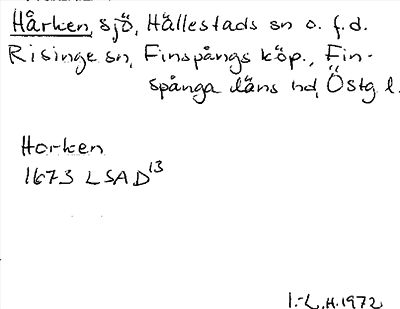 Hårken, sjö, Hällestads sn o. f.d.
Risinge sn, Finspångs köp., Fin-
spånga läns hd, Östg l.
Horken
1673 LSAD13
I.-L.H. 1972